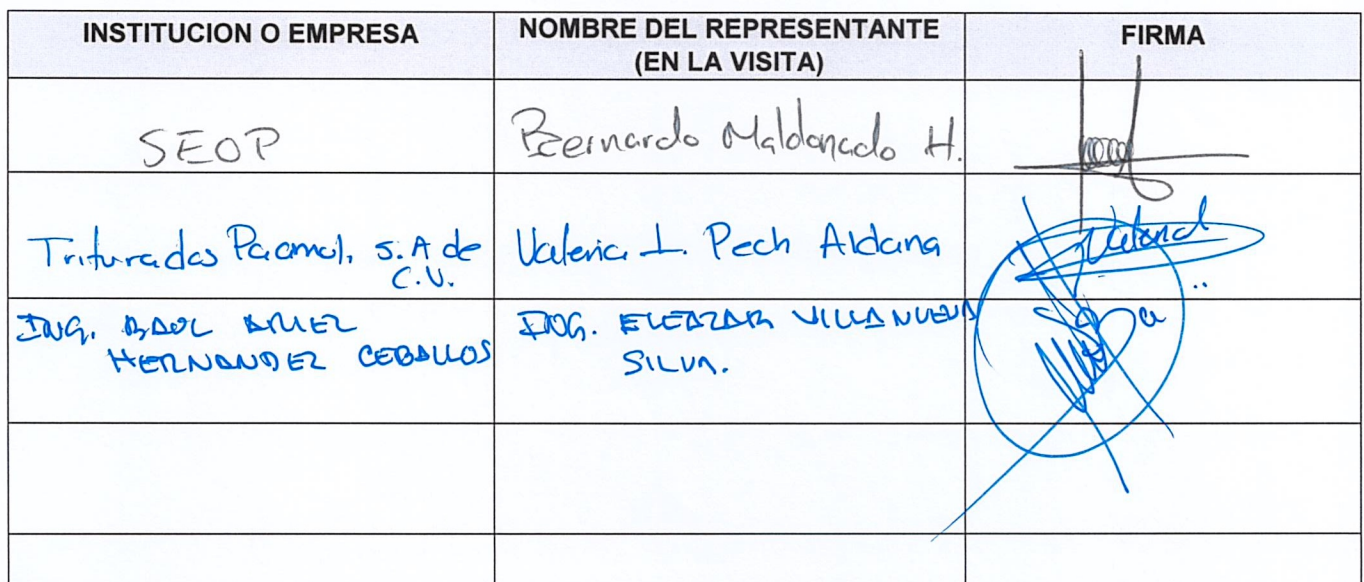 INSTITUCION O EMPRESA
NOMBRE DEL REPRESENTANTE
(EN LA VISITA)
FIRMA
SEOP
Bernardo Maldonado H.
Triturados Pacamul, S.A de
C.V.
Valeria I. Pech Aldana
ING.
HERNANDEZ CEBALLOS
ING. ELEAZAR VILLANUEVA
SILVA.